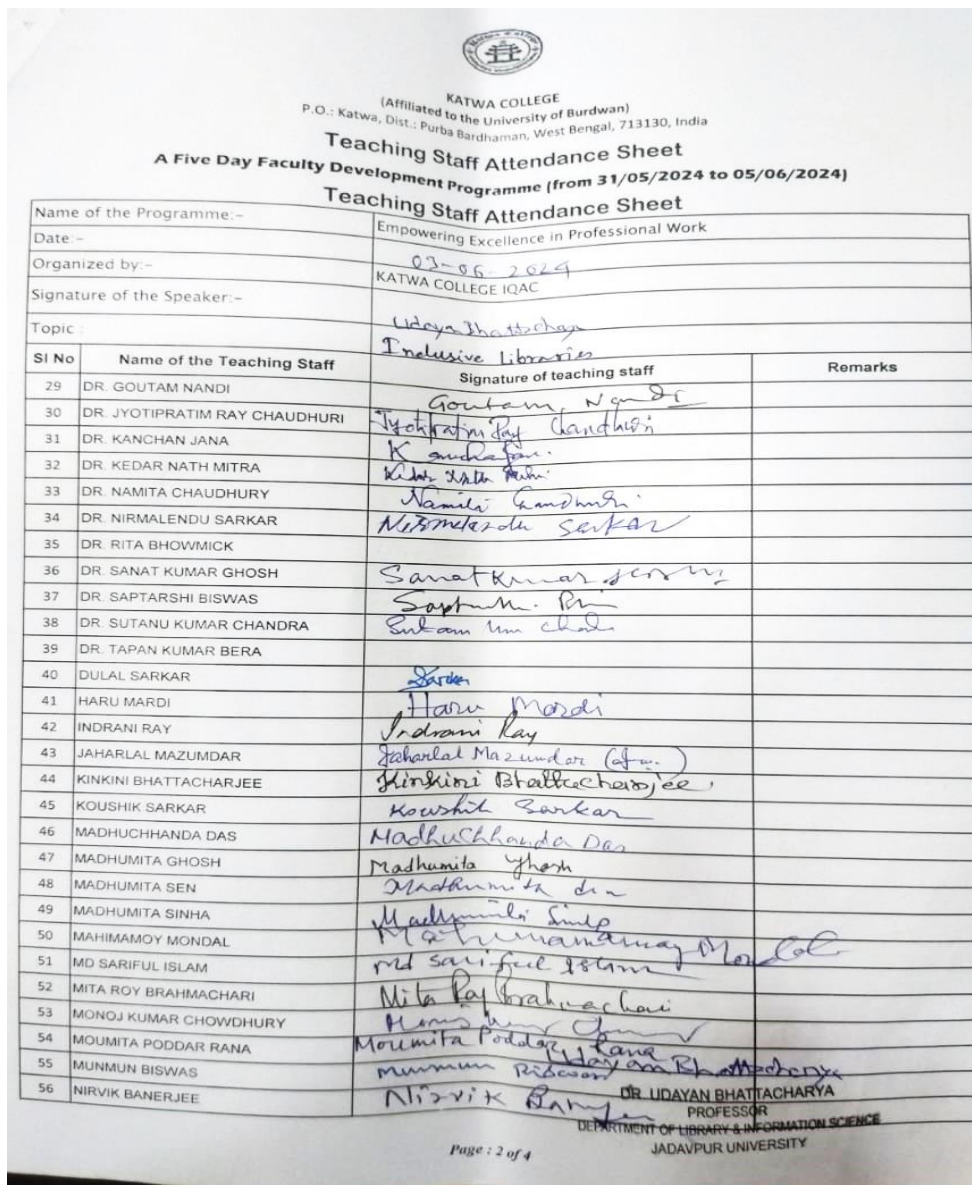 KATWA COLLEGE
(Affiliated to the University of Burdwan)
P.O.: Katwa, Dist.: Purba Bardhaman, West Bengal, 713130, India
Teaching Staff Attendance Sheet
A Five Day Faculty Development Programme (from 31/05/2024 to 05/06/2024)
Teaching Staff Attendance Sheet
Name of the Programme:- Empowering Excellence in Professional Work
Date:- 03-06-2024
Organized by:- KATWA COLLEGE IQAC
Signature of the Speaker:-
Topic : Inclusive Libraries
Sl No Name of the Teaching Staff Signature of teaching staff Remarks
29 DR. GOUTAM NANDI Goutam Nandi
30 DR. JYOTIPRATIM RAY CHAUDHURI Jyotipratim Ray Chaudhuri
31 DR. KANCHAN JANA
32 DR. KEDAR NATH MITRA
33 DR. NAMITA CHAUDHURY Namita Chaudhuri
34 DR. NIRMALENDU SARKAR Nirmalendu Sarkar
35 DR. RITA BHOWMICK
36 DR. SANAT KUMAR GHOSH Sanat Kumar Ghosh
37 DR. SAPTARSHI BISWAS
38 DR. SUTANU KUMAR CHANDRA
39 DR. TAPAN KUMAR BERA
40 DULAL SARKAR Sarkar
41 HARU MARDI Haru Mardi
42 INDRANI RAY Indrani Ray
43 JAHARLAL MAZUMDAR Jaharlal Mazumdar
44 KINKINI BHATTACHARJEE Kinkini Bhattacharjee
45 KOUSHIK SARKAR Koushik Sarkar
46 MADHUCHHANDA DAS Madhuchhanda Das
47 MADHUMITA GHOSH Madhumita Ghosh
48 MADHUMITA SEN Madhumita Sen
49 MADHUMITA SINHA Madhumita Sinha
50 MAHIMAMOY MONDAL Mondal
51 MD SARIFUL ISLAM Md Sariful Islam
52 MITA ROY BRAHMACHARI Mita Roy Brahmachari
53 MONOJ KUMAR CHOWDHURY
54 MOUMITA PODDAR RANA Moumita Poddar Rana
55 MUNMUN BISWAS Munmun Biswas Udayan Bhattacharya
56 NIRVIK BANERJEE Nirvik Banerjee
DR. UDAYAN BHATTACHARYA
PROFESSOR
DEPARTMENT OF LIBRARY & INFORMATION SCIENCE
JADAVPUR UNIVERSITY
Page : 2 of 4